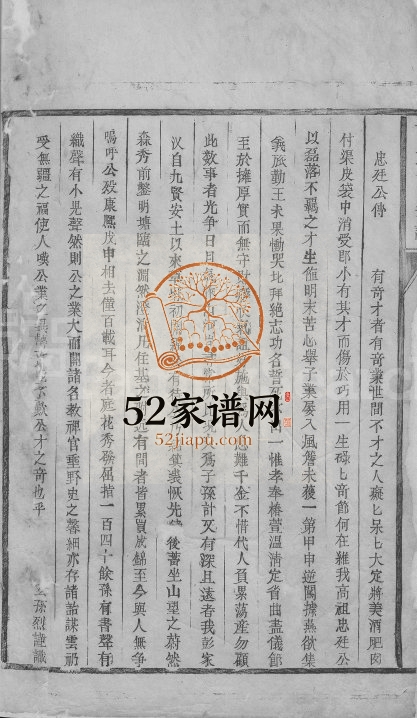 忠廷公傳　有奇才者有奇業世間不才之人癡匕呆匕大定將美酒肥肉
付渠皮袋中消受即小有其才而傷於巧用一生碌匕奇節何在維我高祖忠廷公
以磊落不羈之才生值明末苦心舉子業屢入風簷未獲一第甲申逆闖據燕欲集
義旅勤王未果慟哭北拜絕志功名誓 一惟孝奉椿萱溫凊定省曲盡儀節
至於擁厚實而無守財 氣 施 人患難千金不惜代人負累蕩產勿顧
此數事者光爭日月 為子孫計又有深且遠者我彭家
以自九賢安土以來 有 箕裘恢先緒 後蓄坐山望之蔚然
森秀前鑿明塘臨之淵然 清凡任基 近有間者皆累買成錦至今與人無爭
嗚呼公歿康熙戊申相去僅百載耳今者庭花秀發屈指一百四十餘孫有書聲有
織聲有小兒聲然則公之業大而開諸名教稗官垂野史之馨細亦存諸詒謀雲礽
受無疆之福使人嘆公業之 公才之奇也乎
玄孫烈謹識
52家谱网
52jiapu.com